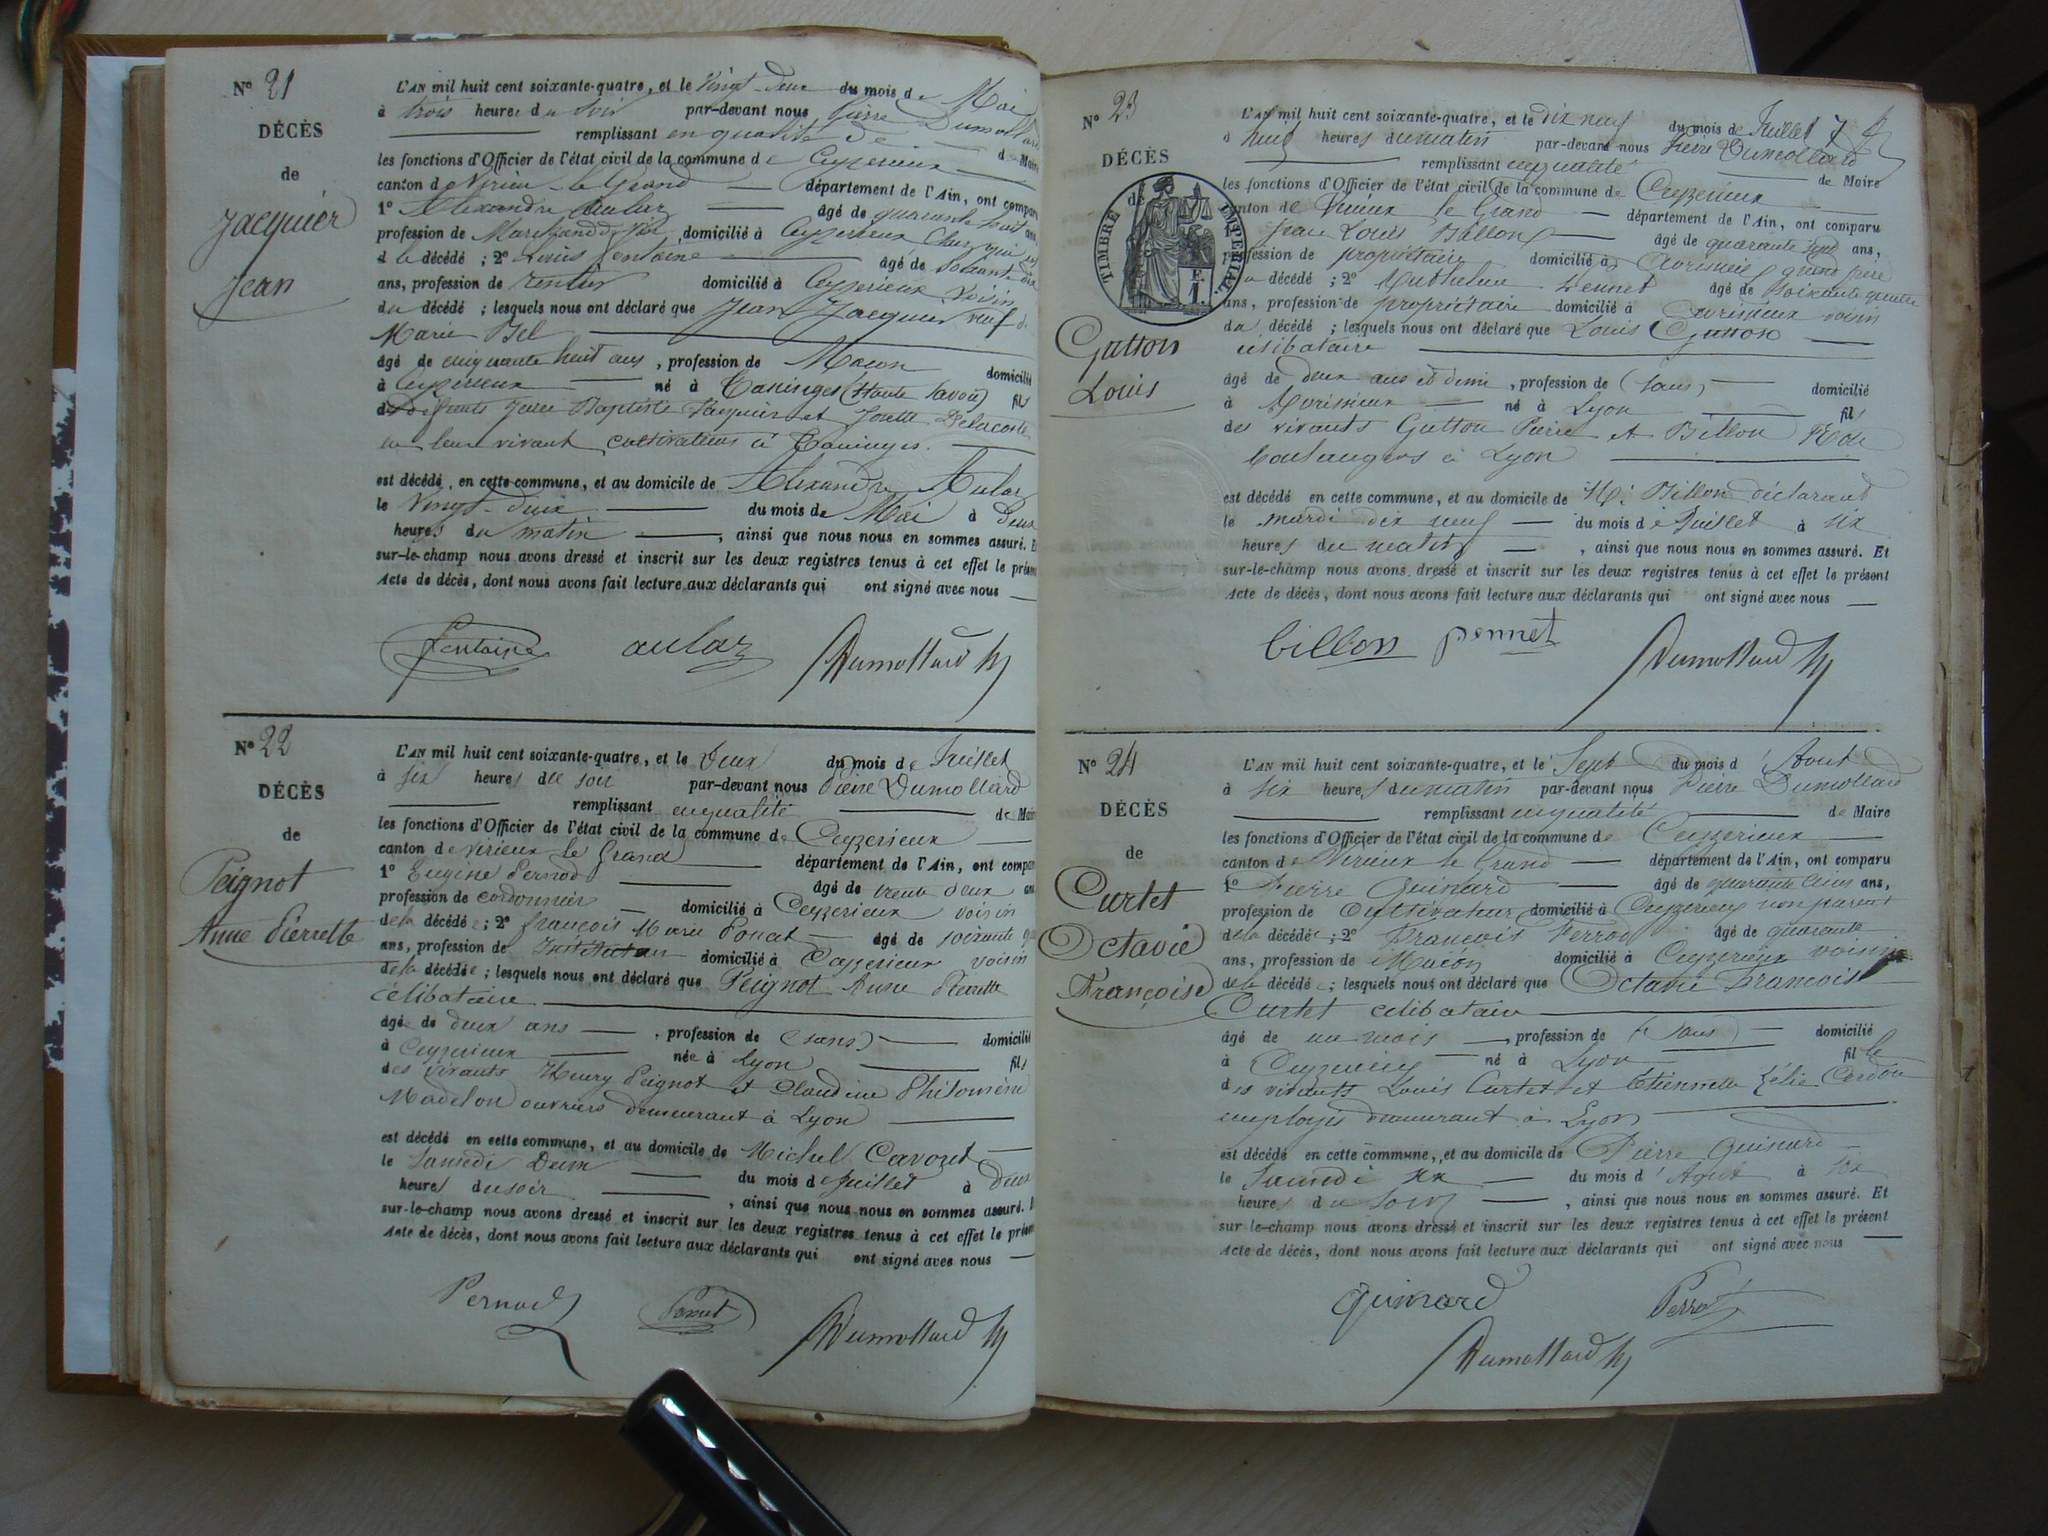 N° 21
DÉCÈS
de
Jacquier
Jean
L'AN mil huit cent soixante-quatre, et le vingt-deux du mois de Mai
à trois heures du soir par-devant nous Pierre Dumollard
remplissant en qualité de de Maire
les fonctions d'Officier de l'état civil de la commune de Ceyzerieux
canton de Virieu-le-Grand département de l'Ain, ont comparu
1° Alexandre Aulaz âgé de quarante huit ans,
profession de Marchand domicilié à Ceyzerieux chez qui est
d le décédé ; 2° Louis Fontaine âgé de soixante dix
ans, profession de rentier domicilié à Ceyzerieux voisin
du décédé ; lesquels nous ont déclaré que Jean Jacquier veuf de
Marie Bel
âgé de cinquante huit ans, profession de Maçon domicilié
à Ceyzerieux né à Taninges (Haute Savoie) fils
de défunts Jean Baptiste Jacquier et Josette Delacoste
en leur vivant cultivateurs à Taninges.
est décédé en cette commune, et au domicile de Alexandre Aulaz
le Vingt-deux du mois de Mai à deux
heures du matin , ainsi que nous nous en sommes assuré. Et
sur-le-champ nous avons dressé et inscrit sur les deux registres tenus à cet effet le présent
Acte de décès, dont nous avons fait lecture aux déclarants qui ont signé avec nous
fontaine aulaz Dumollard
N° 22
DÉCÈS
de
Peignot
Anne Pierrette
L'AN mil huit cent soixante-quatre, et le deux du mois de Juillet
à six heures du soir par-devant nous Pierre Dumollard
remplissant en qualité de Maire
les fonctions d'Officier de l'état civil de la commune de Ceyzerieux
canton de Virieux le Grand département de l'Ain, ont comparu
1° Eugène Pernod âgé de trente deux ans
profession de cordonnier domicilié à Ceyzerieux voisin
de la décédée ; 2° François Marie Poncet âgé de soixante
ans, profession de Instituteur domicilié à Ceyzerieux voisin
de la décédée ; lesquels nous ont déclaré que Peignot Anne Pierrette
célibataire
âgée de deux ans , profession de (sans) domicilié
à Ceyzerieux née à Lyon fils
des vivants Henry Peignot et Claudine Philomène
Madelon ouvriers demeurant à Lyon
est décédé en cette commune, et au domicile de Michel Cavozet
le Samedi Deux du mois de Juillet à deux
heures du soir , ainsi que nous nous en sommes assuré. Et
sur-le-champ nous avons dressé et inscrit sur les deux registres tenus à cet effet le présent
Acte de décès, dont nous avons fait lecture aux déclarants qui ont signé avec nous
Pernod Poncet Dumollard
N° 23
DÉCÈS
de
TIMBRE IMPERIAL
E. 1.
Gutton
Louis
L'AN mil huit cent soixante-quatre, et le dix neuf du mois de Juillet
à huit heures du matin par-devant nous Pierre Dumollard
remplissant en qualité de Maire
les fonctions d'Officier de l'état civil de la commune de Ceyzerieux
canton de Virieux le Grand département de l'Ain, ont comparu
Louis Billon âgé de quarante sept ans,
profession de propriétaire domicilié à Avrissieu grand père
du décédé ; 2° Anthelme Pennet âgé de soixante quatre
ans, profession de propriétaire domicilié à Avrissieux voisin
du décédé ; lesquels nous ont déclaré que Louis Gutton
célibataire
âgé de deux ans et demi , profession de (sans) domicilié
à Avrissieux né à Lyon fils
des vivants Gutton Pierre et Billon
boulangers à Lyon
est décédé en cette commune, et au domicile de Mr Billon déclarant
le mardi dix neuf du mois de Juillet à six
heures du matin , ainsi que nous nous en sommes assuré. Et
sur-le-champ nous avons dressé et inscrit sur les deux registres tenus à cet effet le présent
Acte de décès, dont nous avons fait lecture aux déclarants qui ont signé avec nous
billon pennet Dumollard
N° 24
DÉCÈS
de
Curtet
Octavie
Françoise
L'AN mil huit cent soixante-quatre, et le Sept du mois d'Aout
à six heures du matin par-devant nous Pierre Dumollard
remplissant en qualité de Maire
les fonctions d'Officier de l'état civil de la commune de Ceyzerieux
canton de Virieux le Grand département de l'Ain, ont comparu
1° Pierre Guinard âgé de quarante cinq ans,
profession de Cultivateur domicilié à Ceyzerieux non parent
de la décédée ; 2° François Perrod âgé de quarante
ans, profession de Maçon domicilié à Ceyzerieux voisin
de la décédée ; lesquels nous ont déclaré que Octavie Françoise
Curtet célibataire
âgé de un mois , profession de (sans) domicilié
à Ceyzerieux né à Lyon fille
des vivants Louis Curtet et Etiennette Zélie Cordon
employés demeurant à Lyon
est décédé en cette commune, et au domicile de Pierre Guinard
le Samedi six du mois d'Aout à six
heures du soir , ainsi que nous nous en sommes assuré. Et
sur-le-champ nous avons dressé et inscrit sur les deux registres tenus à cet effet le présent
Acte de décès, dont nous avons fait lecture aux déclarants qui ont signé avec nous
guinard Perrod
Dumollard